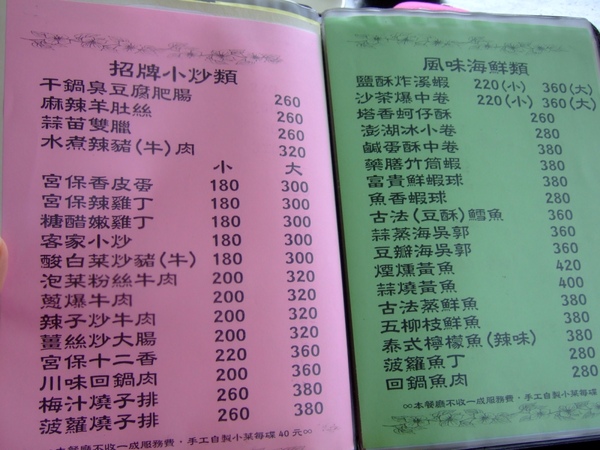 招牌小炒類
干鍋臭豆腐肥腸 260
麻辣羊肚絲 260
蒜苗雙臘 260
水煮辣豬(牛)肉 320
小 大
宮保香皮蛋 180 300
宮保辣雞丁 180 300
糖醋嫩雞丁 180 300
客家小炒 180 300
酸白菜炒豬(牛) 180 300
泡菜粉絲牛肉 200 320
蔥爆牛肉 200 320
辣子炒牛肉 200 320
薑絲炒大腸 200 320
宮保十二香 220 360
川味回鍋肉 200 360
梅汁燒子排 260 380
菠蘿燒子排 260 380
∞本餐廳不收一成服務費，手工自製小菜每碟40元∞
風味海鮮類
鹽酥炸溪蝦 220(小) 360(大)
沙茶爆中卷 220(小) 360(大)
塔香蚵仔酥 260
澎湖冰小卷 280
鹹蛋酥中卷 380
藥膳竹筒蝦 380
富貴鮮蝦球 380
魚香蝦球 280
古法(豆酥)鱈魚 360
蒜蒸海吳郭 360
豆瓣海吳郭 360
煙燻黃魚 420
蒜燒黃魚 400
古法蒸鮮魚 380
五柳枝鮮魚 380
泰式檸檬魚(辣味) 380
菠蘿魚丁 280
回鍋魚肉 280
∞本餐廳不收一成服務費，手工自製小菜每碟